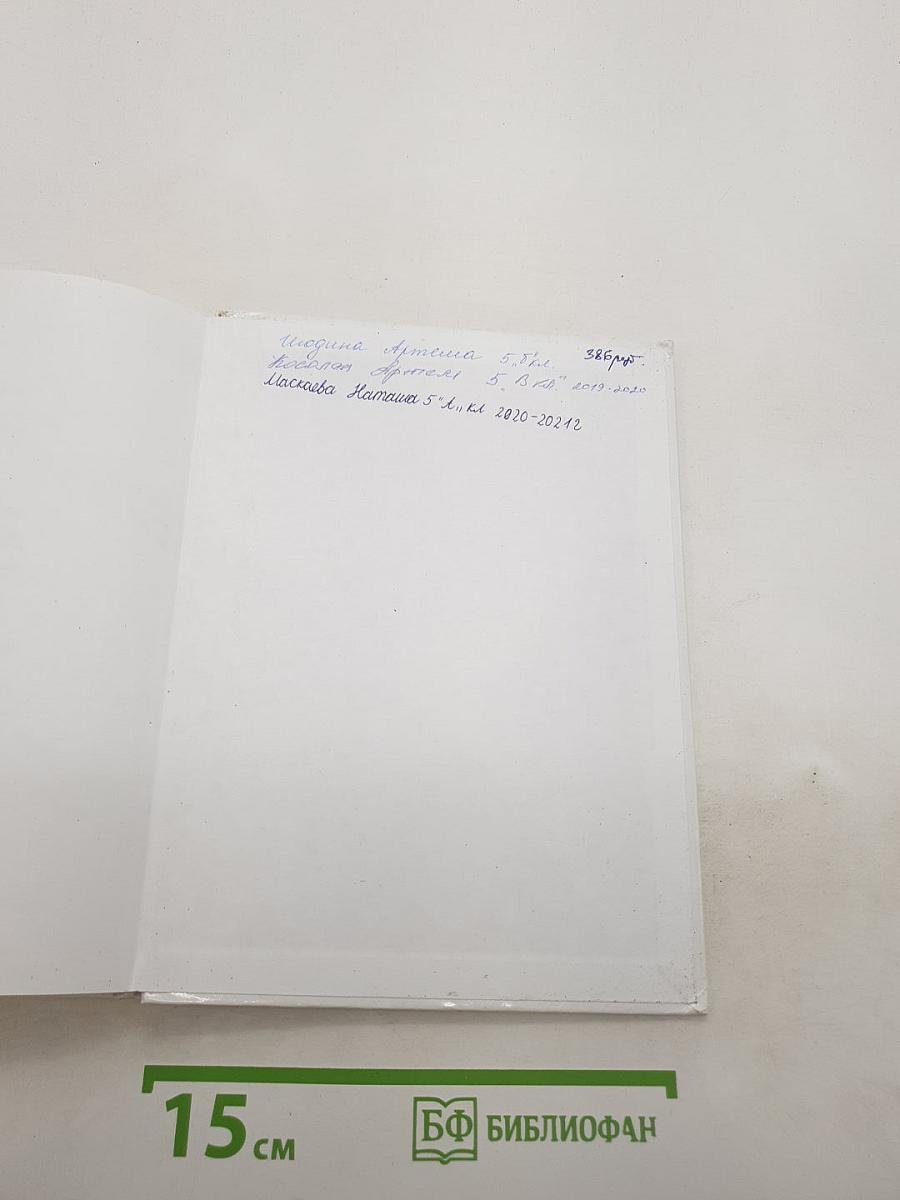 Шодина Артема 5 „Б" кл. 386 руб.
Артем 5 „В кл." 2019-2020
Маскаева Наташа 5 "А„ кл 2020-2021г
15 см
БФ БИБЛИОФАН